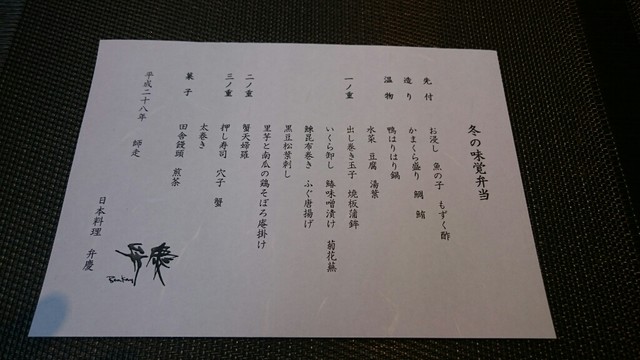 冬の味覚弁当
先付 お浸し 魚の子 もずく酢
造り かまくら盛り 鯛 鮪
温物 鴨はりはり鍋
水菜 豆腐 湯葉
一ノ重 出し巻き玉子 焼板蒲鉾
いくら卸し 鰆味噌漬け 菊花蕪
鰊昆布巻き ふぐ唐揚げ
黒豆松葉刺し
里芋と南瓜の鶏そぼろ庵掛け
二ノ重 蟹天婦羅
三ノ重 押し寿司 穴子 蟹
太巻き
菓子 田舎饅頭 煎茶
平成二十八年 師走
日本料理 弁慶
弁慶
Benkay